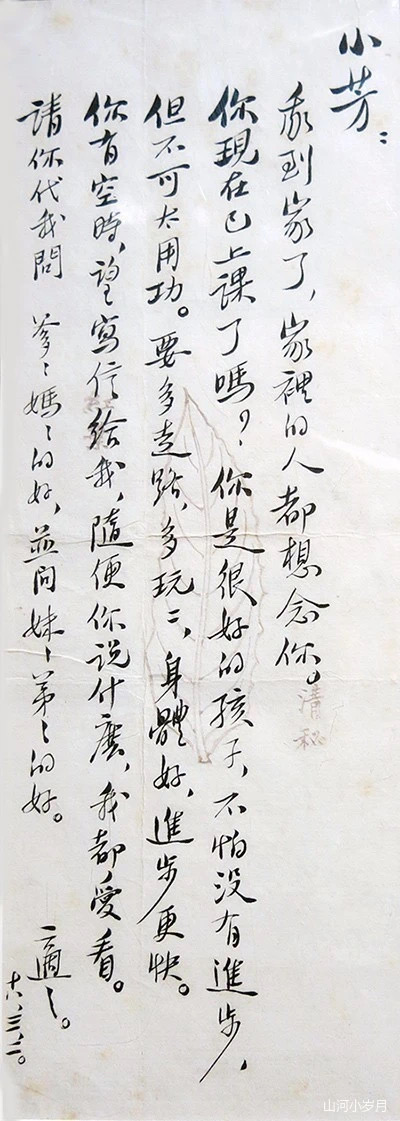 小芳：
我到家了，家裡的人都想念你。
你現在已上課了嗎？你是很好的孩子，不怕没有進步，
但不可太用功。要多走路，多玩玩，身體好，進步更快。
你有空時，望寫信給我，隨便你说什麽，我都愛看。
請你代我問 爹爹媽媽的好，並问妹妹弟弟的好。
適之。
十八，三，二。
清秘
山河小岁月